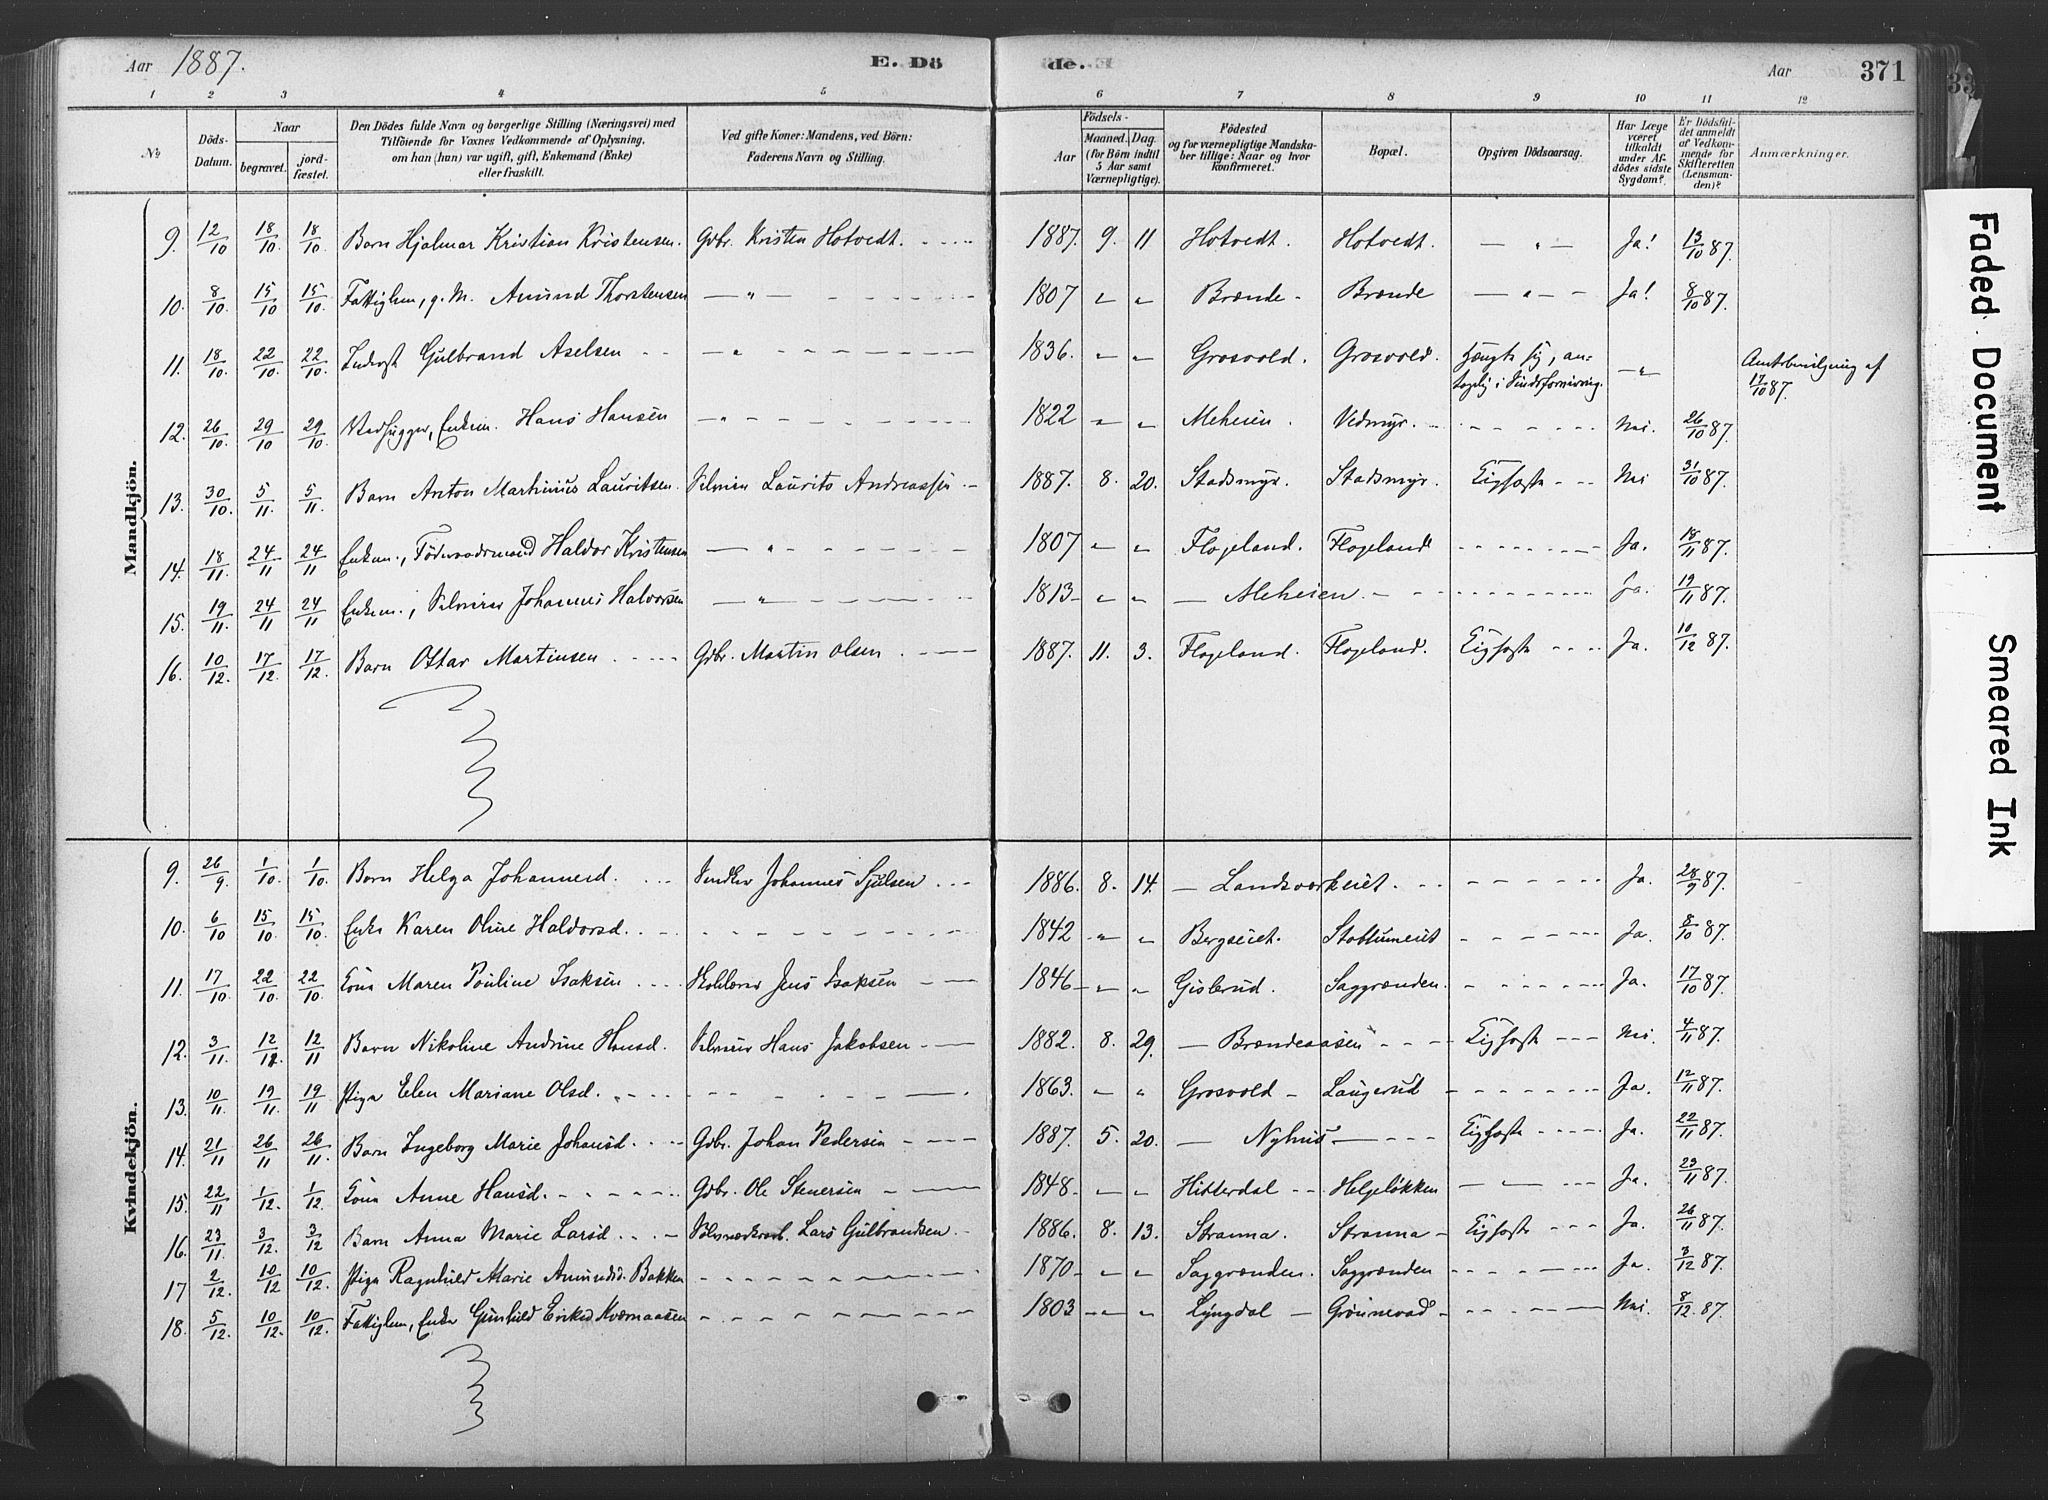 Aar 1887. E. Dö de. Aar 371
1 2 3 4 5 6 7 8 9 10 11 12
№ Döds-Datum. Naar begravet. jord-fæstet. Den Dödes fulde Navn og borgerlige Stilling (Næringsvei) med Tilföiende for Voxnes Vedkommende af Oplysning, om han (hun) var ugift, gift, Enkemand (Enke) eller fraskilt. Ved gifte Koner: Mandens, ved Börn: Faderens Navn og Stilling. Födsels- Aar Maaned. Dag. (for Börn indtil 5 Aar samt Værnepligtige). Födested og for værnepligtige Mandskaber tillige: Naar og hvor konfirmeret. Bopæl. Opgiven Dödsaarsag. Har Læge været tilkaldt under Afdödes sidste Sygdom? Er Dödsfaldet anmeldt af Vedkommende for Skifteretten (Lensmanden)? Anmærkninger.
Mandkjön.
9. 12/10 18/10. 18/10. Barn Hjalmar Kristian Kristensen. Gdbr. Kristen Hotvedt. 1887. 9. 11 Hotvedt. Hotvedt. — „ — Ja! 13/10 87.
10. 8/10. 15/10 15/10. Fattiglem, g. M. Amund Thorstensen — „ — 1807 „ „ Brænde - Brænde — „ — Ja! 8/10 87.
11. 18/10. 22/10. 22/10. Inderst Gulbrand Aselsen — „ 1836. „ „ Grosvold. Grosvold. Hængt sig, an-
tagelig i Sindsforvirring. — „ Amtsbevilgning af
17/10 87.
12. 26/10. 29/10 29/10. Vedhugger, Enkem. Hans Hansen — „ 1822 „ „ Meheien. Vedmyr. Nei. 26/10 87.
13. 30/10. 5/11. 5/11. Barn Anton Martinius Lauritsen. Selveier Laurits Andreassen 1887. 8. 20. Stadsmyr. Stadsmyr. Nei 31/10 87.
14. 18/11. 24/11 24/11 Enkem., Föderaadsmand Haldor Kristensen — „ 1807 „ „ Flogeland. Flogeland Ja. 18/11 87.
15. 19/11. 24/11 24/11 Enkem., Selveier Johannes Halvorsen — „ 1813 „ „ — Meheien Ja. 19/11 87.
16. 10/12. 17/12. 17/12. Barn Ottar Martinsen Gdbr. Martin Olsen 1887. 11. 3. Flogeland. Flogeland. Ja. 10/12 87.
Kvindekjön.
9. 26/9. 1/10. 1/10. Barn Helga Johannesd. Johannes Sjulsen 1886. 8. 14. — Landsværkeiet. Ja. 28/9 87.
10. 6/10 15/10. 15/10. Enke Karen Oline Haldorsd. 1842 „ „ Bergseiet. Stottumeiet Ja. 8/10 87.
11. 17/10 22/10. 22/10. Kone Maren Pauline Isaksen Jens Isaksen 1846 „ „ Gislerud. Saggrænden. Ja. 17/10 87.
12. 3/11. 12/12. 12/11 Barn Nikoline Andrine Hansd. Selveier Hans Jakobsen 1882. 8. 29. — Brændeaasen Nei. 4/11 87.
13. 10/11. 19/11. 19/11 Pige Elen Mariane Olsd. 1863. „ „ Grosvold - Laugerud Ja. 12/11 87.
14. 21/11 26/11 26/11. Barn Ingeborg Marie Johansd. Gdbr. Johan Pedersen 1887. 5. 20. — Nyhus — Ja. 22/11 87.
15. 22/11 1/12. 1/12. Kone Anne Hansd. Gdbr. Ole Stenersen 1848 „ „ Hitterdal - - Helgeløkken Ja. 23/11 87.
16. 23/11. 3/12. 3/12 Barn Anna Marie Larsd. Lars Gulbrandsen 1886. 8. 13. Stranna. Stranna Ja. 26/11 87.
17 2/12. 10/12 10/12. Pige Ragnhild Marie Amundsd. Bakken 1870 „ „ Saggrænden. Saggrænden Ja. 3/12 87.
18. 5/12. 10/12. 10/12. Fattiglem, Enke Gunhild Eriksd. Kværnaasen 1803 „ „ Lyngdal — Grönnevad Nei. 8/12. 87
Faded Document
Smeared Ink